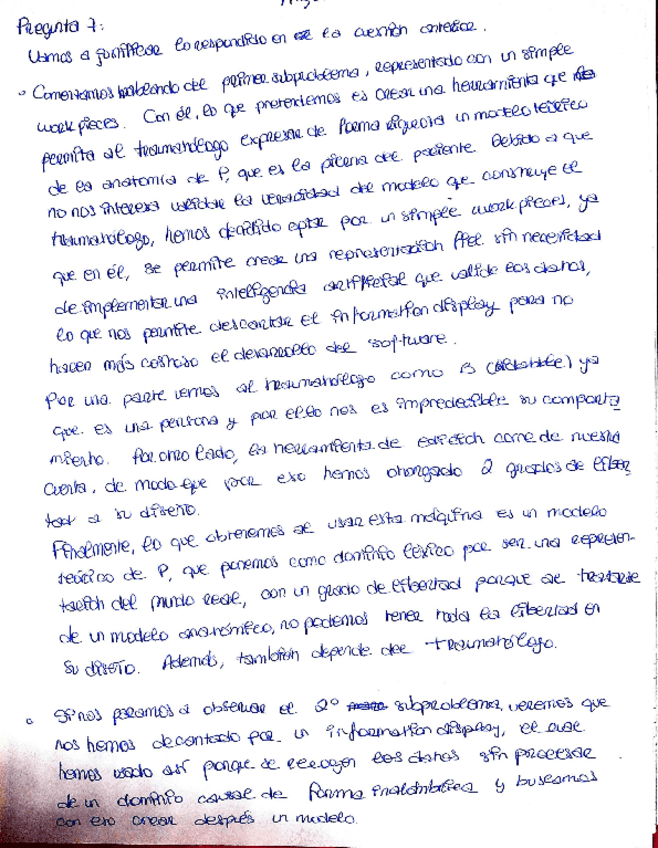 Pregunta 7:
Vamos a justificar lo respondido en la cuestión anterior.
◦ Comenzamos hablando del primer subproblema, representado con un simple
workpieces. Con él, lo que pretendemos es crear una herramienta que
permita al traumatólogo expresar de forma rigurosa un modelo teórico
de la anatomía de P, que es la pierna del paciente. Debido a que
no nos interesa validar la veracidad del modelo que construye el
traumatólogo, hemos decidido optar por un simple workpieces, ya
que en él, se permite crear una representación fiel sin necesidad
de implementar una inteligencia artificial que valide los datos,
lo que nos permite descartar el information display para no
hacer más costoso el desarrollo del software.
Por una parte vemos al traumatólogo como B ya
que es una persona y por ello nos es impredecible su comporta
miento. Por otro lado, la herramienta de edición corre de nuestra
cuenta, de modo que por eso hemos otorgado 2 grados de liber
tad a su diseño.
Finalmente, lo que obtenemos al usar esta máquina es un modelo
teórico de P, que ponemos como dominio léxico por ser una represen-
tación del mundo real, con un grado de libertad porque al tratarse
de un modelo anatómico, no podemos tener toda la libertad en
su diseño. Además, también depende del traumatólogo.
◦ Si nos paramos a observar el 2º subproblema, veremos que
nos hemos decantado por un information display, el cual
hemos usado así porque se recogen los datos sin procesar
de un dominio causal de forma inalámbrica y buscamos
con ello crear después un modelo.